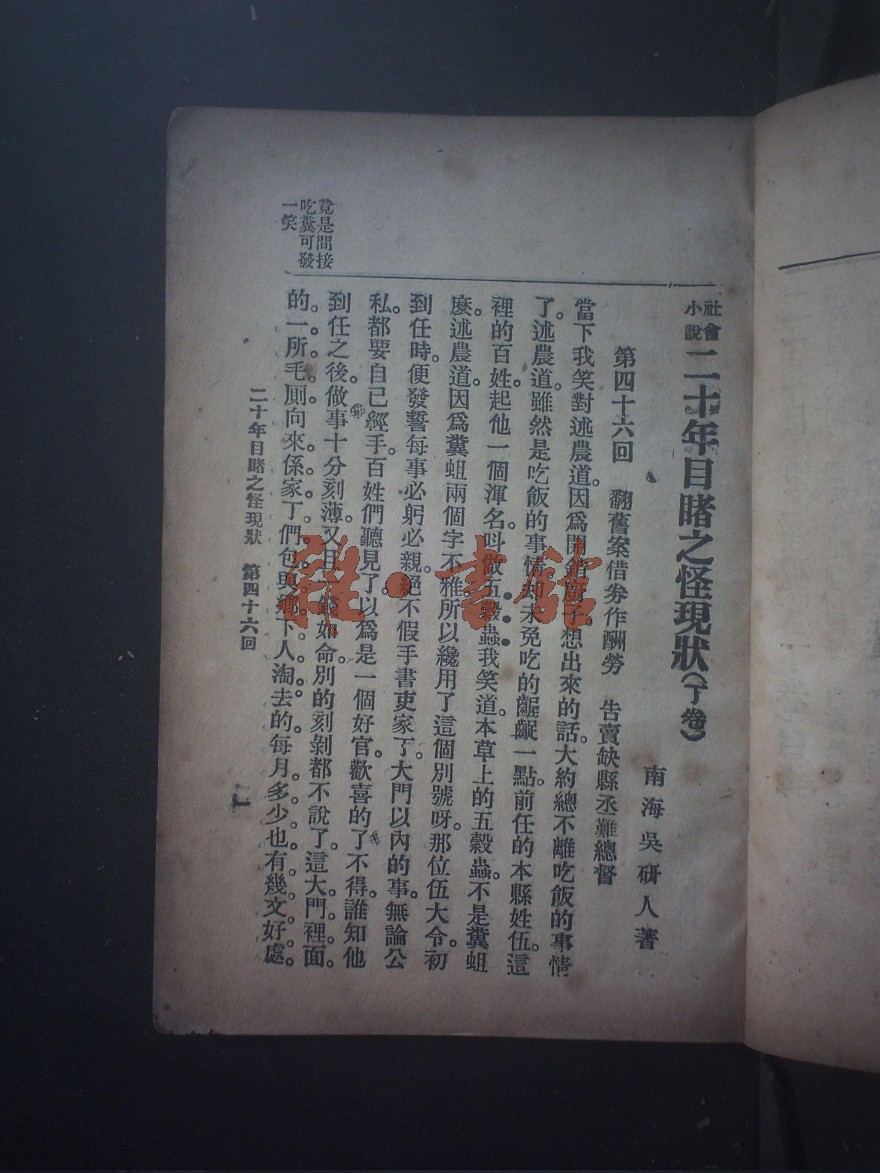 社會小說 二十年目睹之怪現狀（丁卷）
南海吳硏人著
第四十六回 翻舊案借券作酬勞 告賣缺縣丞難總督
當下我笑對述農道。因爲開銷廚子想出來的話。大約總不離吃飯的事情
了。述農道。雖然是吃飯的事情却未免吃的齷齪一點。前任的本縣姓伍。這
裡的百姓起他一個渾名。呌做五穀蟲。我笑道。本草上的五穀蟲。不是糞蛆
麽。述農道。因爲糞蛆兩個字不雅所以纔用了這個別號呀。那位伍大令。初
到任時。便發誓每事必躬必親。絕不假手書吏家丁。大門以內的事。無論公
私都要自己經手。百姓們聽見了。以爲是一個好官。歡喜的了不得。誰知他
到任之後。做事十分刻薄。又且 如命。別的刻剝都不說了。這大門裡面。
的一所毛厠。向來係家丁們包與鄉下人淘去的。每月多少也有幾文好處。
竟是間接
吃糞可發
一笑
二十年目睹之怪現狀 第四十六回
一
雜·書館